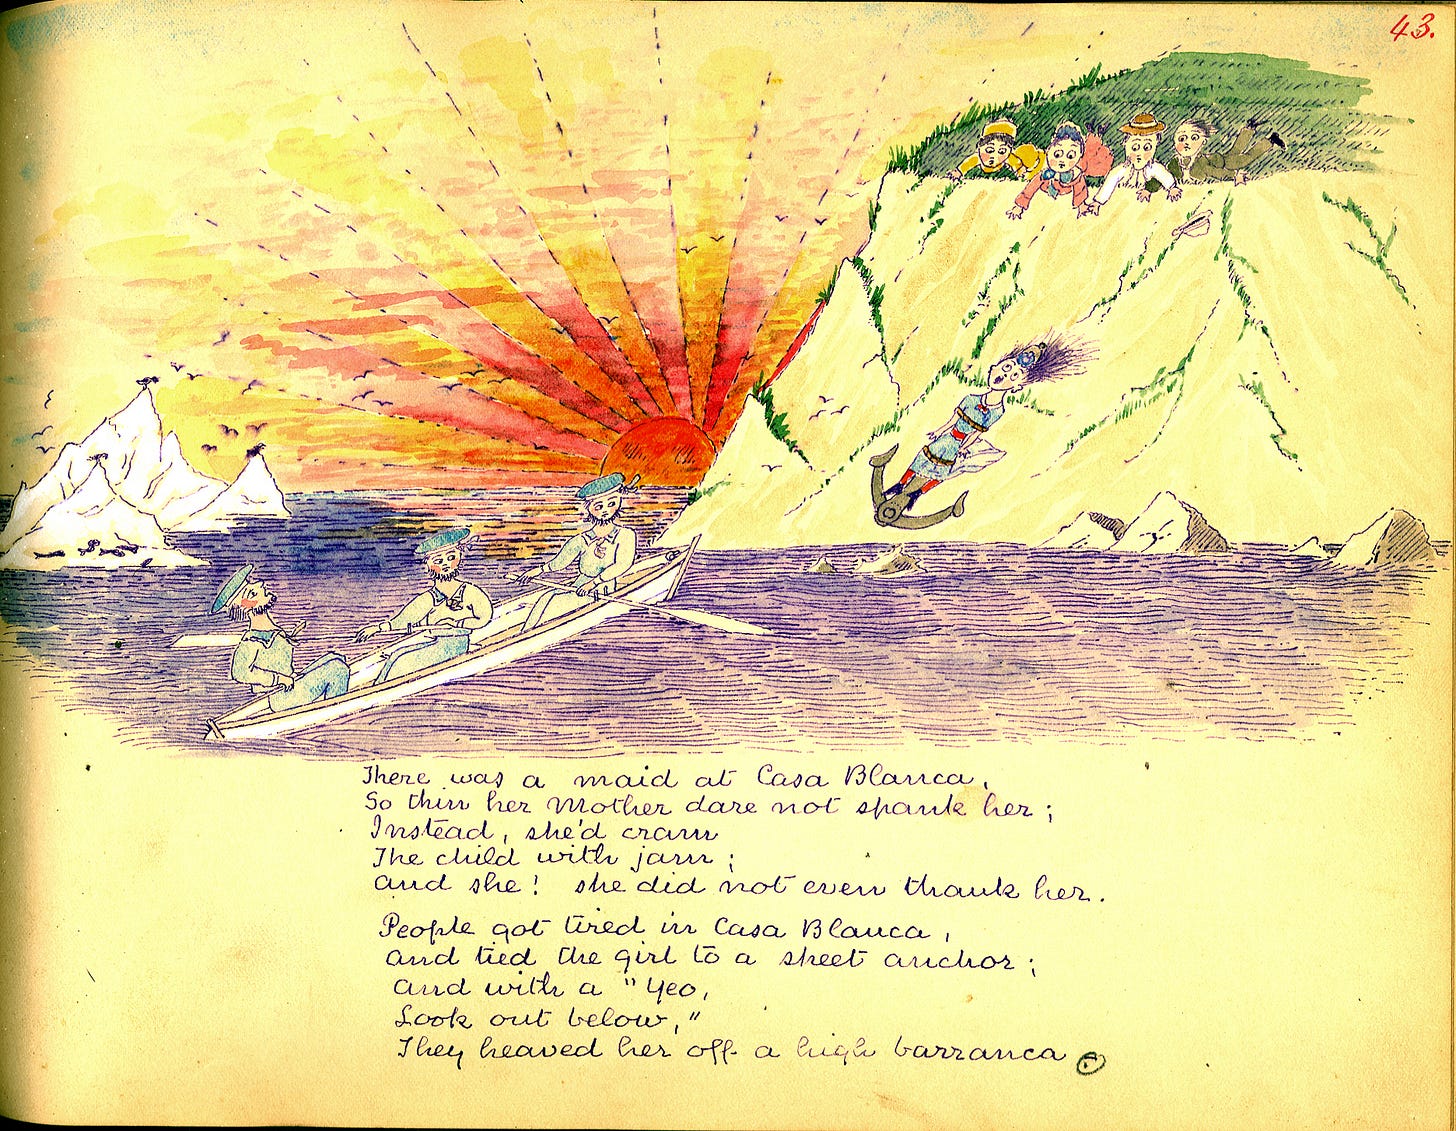 43.
There was a maid at Casa Blanca,
So thin her Mother dare not spank her;
Instead, she'd cram
The child with jam;
And she! she did not even thank her.
People got tired in Casa Blanca,
And tied the girl to a sheet anchor;
And with a "Yeo,
Look out below,"
They heaved her off a high barranca